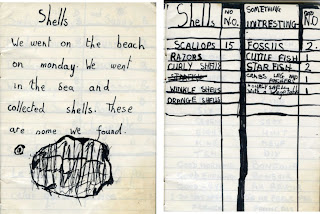 Shells
We went on the beach
on monday. We went
in the sea and
collected shells. These
are some we found.
Shells NO SOMETHING
N.O. INTRESTING N.O
SCALLOPS 15 FOSSILS 2.
RAZORS CUTTLE FISH
CURLY SHELLS STAR FISH 2
CRABS LEG AND
WINKLE SHELLS 1
ORANGE SHELLS